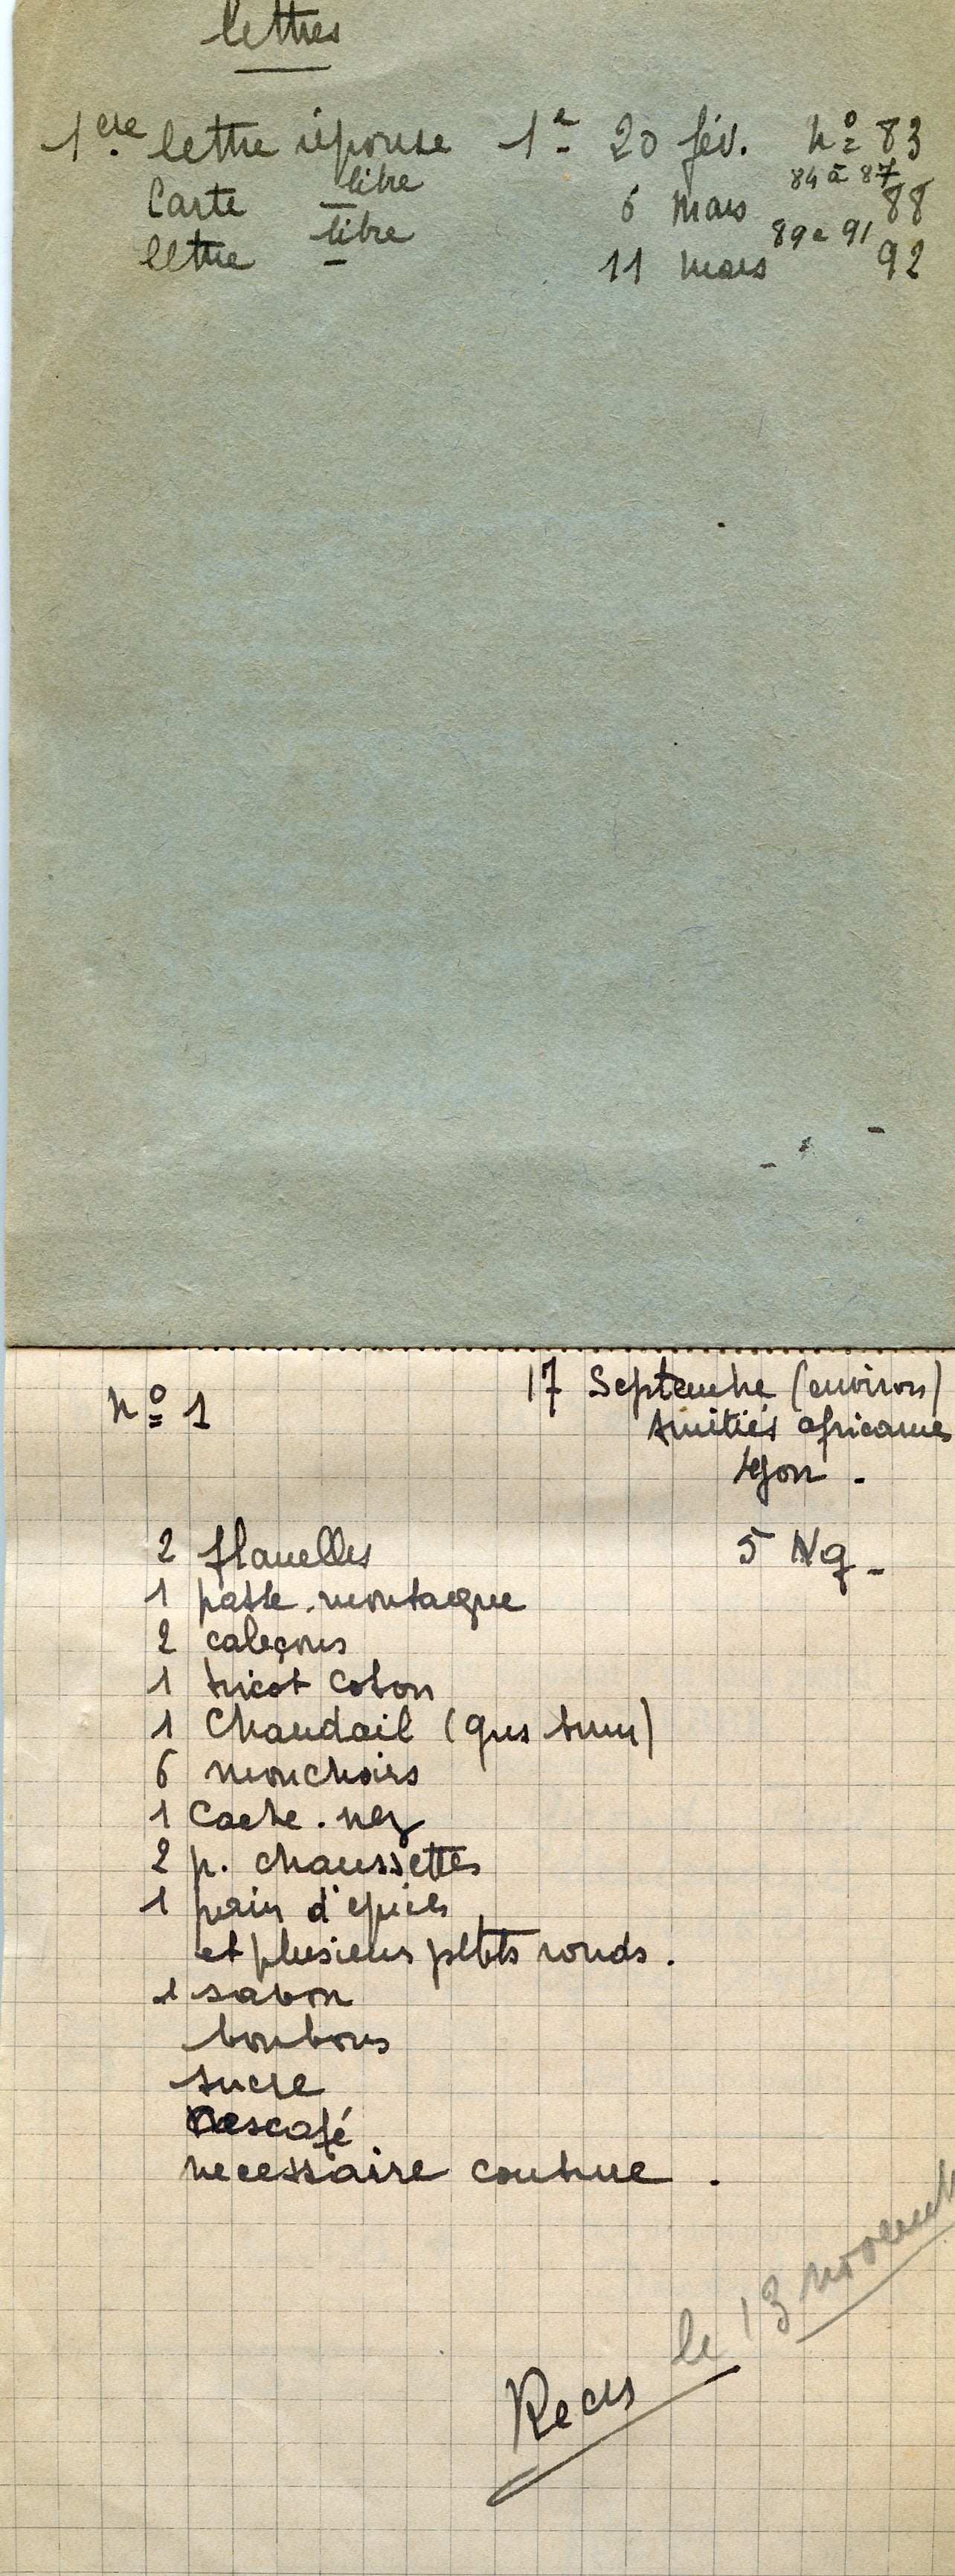 lettres
1ere lettre réponse 1e 20 fév. nº 83
84 à 87
Carte libre 6 mars 88
89 a 91
lettre libre 11 mars 92
nº 1 17 Septembre (environ)
Amitiés africaines
Lyon.
2 flanelles 5 Kg
1 passe-montagne
2 caleçons
1 tricot coton
1 Chandail (gris brun)
6 mouchoirs
1 Cache-nez
2 p. chaussettes
1 pain d'épices
et plusieurs petits ronds.
1 savon
bonbons
sucre
nescafé
necessaire couture.
Recus le 13 novemb